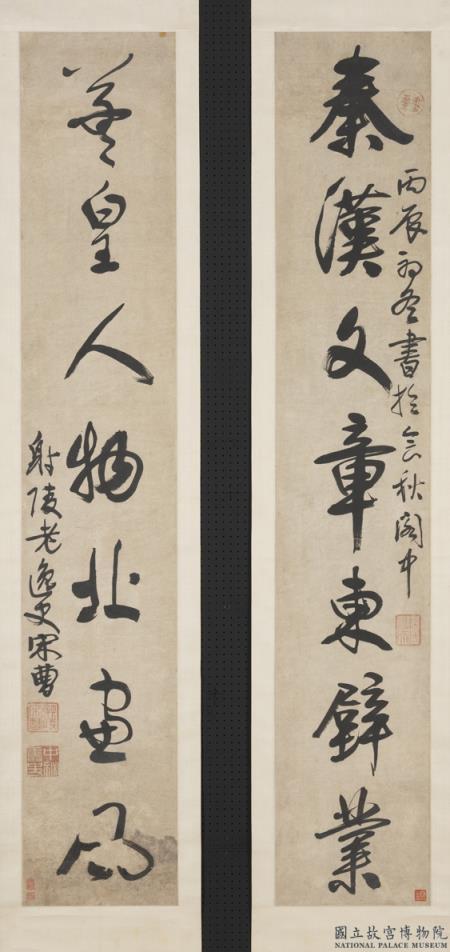 秦漢文章東壁業
丙辰初冬書於會秋閣中
羲皇人物北窗風
射陵老逸史宋曹
國立故宮博物院
NATIONAL PALACE MUSEUM